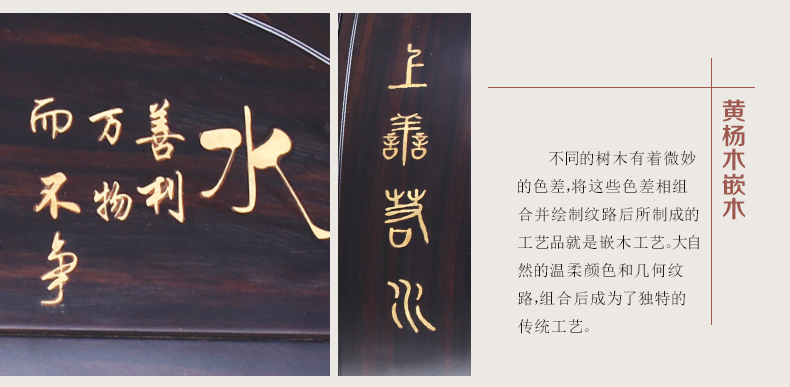 水
善利
万物
而不争
上善若水
黄杨木嵌木
不同的树木有着微妙
的色差,将这些色差相组
合并绘制纹路后所制成的
工艺品就是嵌木工艺。大自
然的温柔颜色和几何纹
路,组合后成为了独特的
传统工艺。